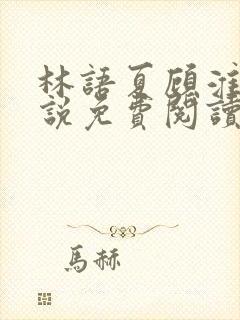 林語夏顧淮
說免費閱讀
馬赫